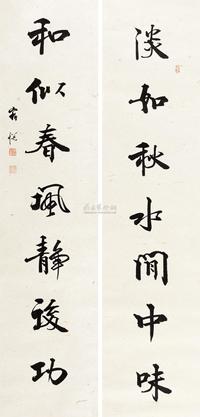 淡如秋水閒中味
和似春風靜後功